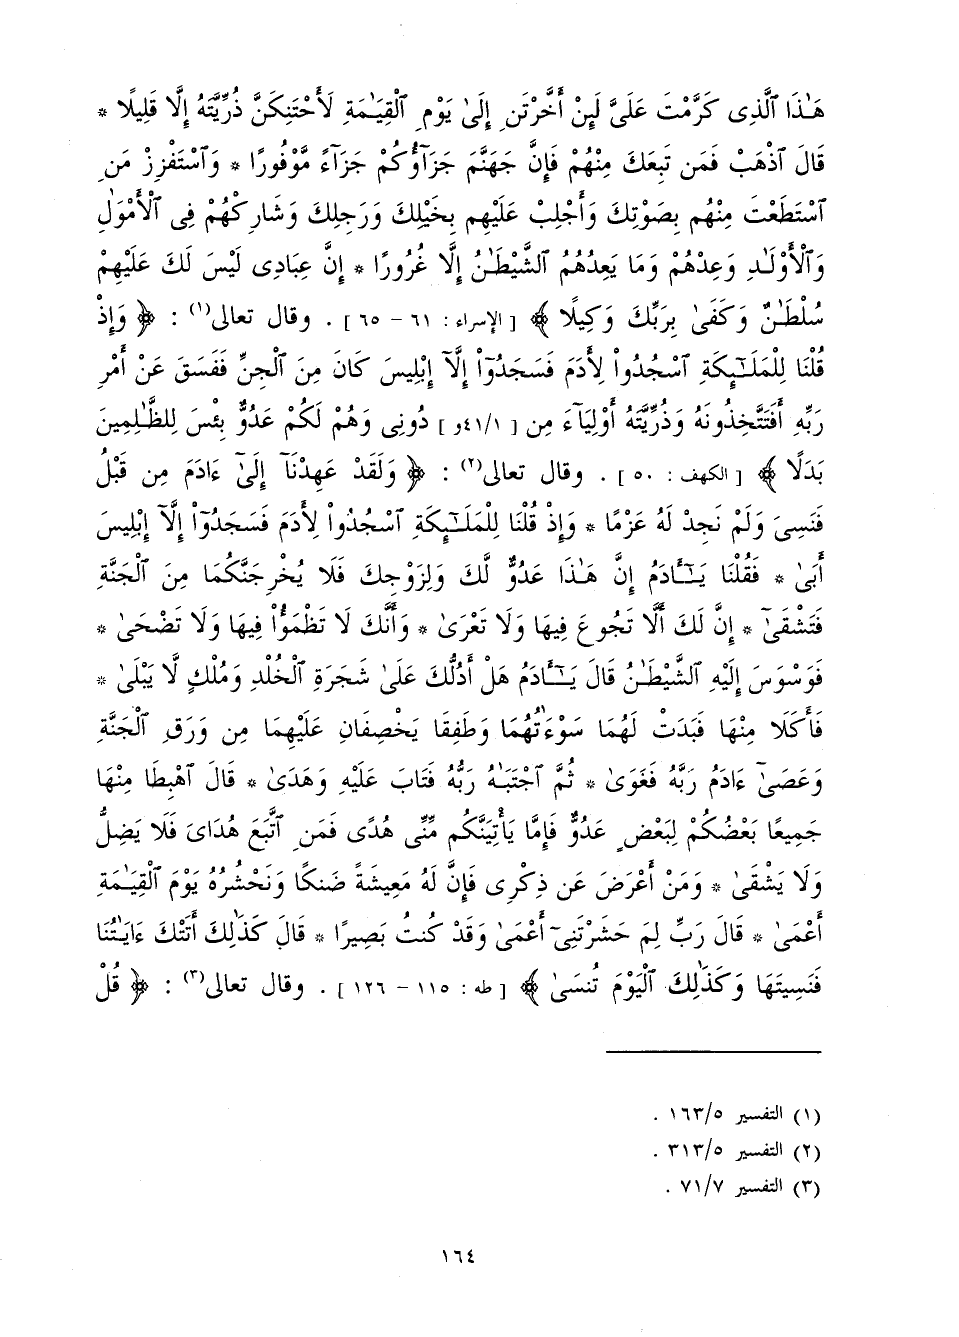 هَـٰذَا ٱلَّذِى كَرَّمْتَ عَلَىَّ لَئِنْ أَخَّرْتَنِ إِلَىٰ يَوْمِ ٱلْقِيَـٰمَةِ لَأَحْتَنِكَنَّ ذُرِّيَّتَهُ إِلَّا قَلِيلًا *
قَالَ ٱذْهَبْ فَمَن تَبِعَكَ مِنْهُمْ فَإِنَّ جَهَنَّمَ جَزَآؤُكُمْ جَزَآءً مَّوْفُورًا * وَٱسْتَفْزِزْ مَنِ
ٱسْتَطَعْتَ مِنْهُم بِصَوْتِكَ وَأَجْلِبْ عَلَيْهِم بِخَيْلِكَ وَرَجِلِكَ وَشَارِكْهُمْ فِى ٱلْأَمْوَٰلِ
وَٱلْأَوْلَـٰدِ وَعِدْهُمْ وَمَا يَعِدُهُمُ ٱلشَّيْطَـٰنُ إِلَّا غُرُورًا * إِنَّ عِبَادِى لَيْسَ لَكَ عَلَيْهِمْ
سُلْطَـٰنٌ وَكَفَىٰ بِرَبِّكَ وَكِيلًا ﴾ [ الإسراء : ٦١ – ٦٥ ] . وقال تعالى(١) : ﴿ وَإِذْ
قُلْنَا لِلْمَلَـٰٓئِكَةِ ٱسْجُدُوا۟ لِأَدَمَ فَسَجَدُوٓا۟ إِلَّآ إِبْلِيسَ كَانَ مِنَ ٱلْجِنِّ فَفَسَقَ عَنْ أَمْرِ
رَبِّهِ أَفَتَتَّخِذُونَهُ وَذُرِّيَّتَهُ أَوْلِيَآءَ مِن [ ٤١/١و ] دُونِى وَهُمْ لَكُمْ عَدُوٌّ بِئْسَ لِلظَّـٰلِمِينَ
بَدَلًا ﴾ [ الكهف : ٥٠ ] . وقال تعالى(٢) : ﴿ وَلَقَدْ عَهِدْنَآ إِلَىٰٓ ءَادَمَ مِن قَبْلُ
فَنَسِىَ وَلَمْ نَجِدْ لَهُ عَزْمًا * وَإِذْ قُلْنَا لِلْمَلَـٰٓئِكَةِ ٱسْجُدُوا۟ لِأَدَمَ فَسَجَدُوٓا۟ إِلَّآ إِبْلِيسَ
أَبَىٰ * فَقُلْنَا يَـٰٓـَٔادَمُ إِنَّ هَـٰذَا عَدُوٌّ لَّكَ وَلِزَوْجِكَ فَلَا يُخْرِجَنَّكُمَا مِنَ ٱلْجَنَّةِ
فَتَشْقَىٰٓ * إِنَّ لَكَ أَلَّا تَجُوعَ فِيهَا وَلَا تَعْرَىٰ * وَأَنَّكَ لَا تَظْمَؤُا۟ فِيهَا وَلَا تَضْحَىٰ *
فَوَسْوَسَ إِلَيْهِ ٱلشَّيْطَـٰنُ قَالَ يَـٰٓـَٔادَمُ هَلْ أَدُلُّكَ عَلَىٰ شَجَرَةِ ٱلْخُلْدِ وَمُلْكٍ لَّا يَبْلَىٰ *
فَأَكَلَا مِنْهَا فَبَدَتْ لَهُمَا سَوْءَٰتُهُمَا وَطَفِقَا يَخْصِفَانِ عَلَيْهِمَا مِن وَرَقِ ٱلْجَنَّةِ
وَعَصَىٰٓ ءَادَمُ رَبَّهُ فَغَوَىٰ * ثُمَّ ٱجْتَبَـٰهُ رَبُّهُ فَتَابَ عَلَيْهِ وَهَدَىٰ * قَالَ ٱهْبِطَا مِنْهَا
جَمِيعًا بَعْضُكُمْ لِبَعْضٍ عَدُوٌّ فَإِمَّا يَأْتِيَنَّكُم مِّنِّى هُدًى فَمَنِ ٱتَّبَعَ هُدَاىَ فَلَا يَضِلُّ
وَلَا يَشْقَىٰ * وَمَنْ أَعْرَضَ عَن ذِكْرِى فَإِنَّ لَهُ مَعِيشَةً ضَنكًا وَنَحْشُرُهُ يَوْمَ ٱلْقِيَـٰمَةِ
أَعْمَىٰ * قَالَ رَبِّ لِمَ حَشَرْتَنِىٓ أَعْمَىٰ وَقَدْ كُنتُ بَصِيرًا * قَالَ كَذَٰلِكَ أَتَتْكَ ءَايَـٰتُنَا
فَنَسِيتَهَا وَكَذَٰلِكَ ٱلْيَوْمَ تُنسَىٰ ﴾ [ طه : ١١٥ – ١٢٦ ] . وقال تعالى(٣) : ﴿ قُلْ
(١) التفسير ١٦٣/٥ .
(٢) التفسير ٣١٣/٥ .
(٣) التفسير ٧١/٧ .
١٦٤